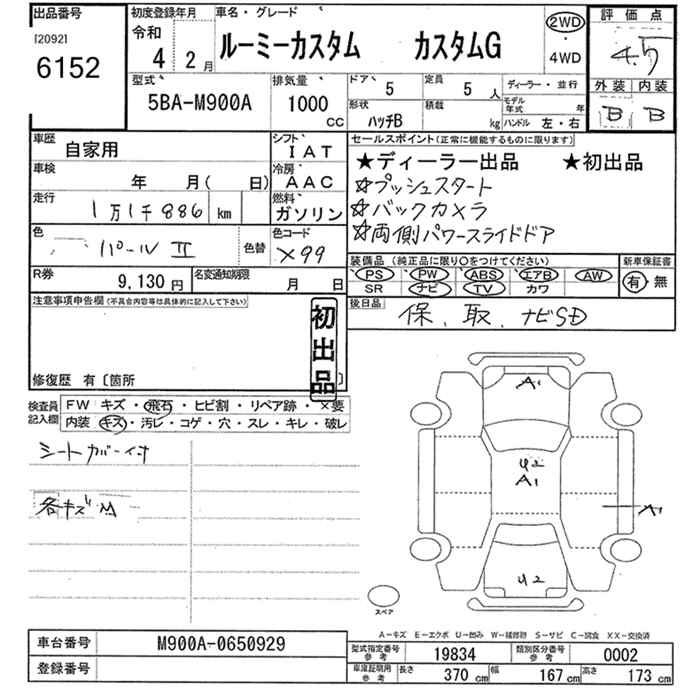 出品番号 初度登録年月 車名・グレード 2WD 評価点
[2092] 令和 ルーミーカスタム カスタムG ・ 4.5
6152 4 2月 4WD
型式 排気量 ドア 5 定員 5人 ディーラー・並行 外装 内装
5BA-M900A 1000cc 形状 ハッチB 積載 kg モデル年式 年 B B
ハンドル 左・右
車歴 自家用 シフト IAT セールスポイント(正常に機能するものに限ります)
車検 年 月( 日) 冷房 AAC ★ディーラー出品 ★初出品
走行 1万1千886 km 燃料 ガソリン ☆プッシュスタート
☆バックカメラ
色 パールII 色替 色コード X99 ☆両側パワースライドドア
R券 9,130円 名変通知期限 月 日 装備品(純正品に限り○をつけてください) 新車保証書
PS PW ABS エアB AW 有・無
SR ナビ TV カワ
注意事項申告欄(不具合内容等は具体的に記入して下さい) 後日品 保、取、ナビSD
初出品
修復歴 有〔箇所 〕
検査員 FW キズ・飛石・ヒビ割・リペア跡・×要
記入欄 内装 キズ・汚レ・コゲ・穴・スレ・キレ・破レ
シートカバー付
各キズM
A1
U2
A1
A1
U2
スペア
A-キズ E-エクボ U-凹み W-補修跡 S-サビ C-腐食 XX-交換済
車台番号 M900A-0650929
型式指定番号 参考 19834 類別区分番号 参考 0002
登録番号
車庫証明用 参考 長さ 370cm 幅 167cm 高さ 173cm